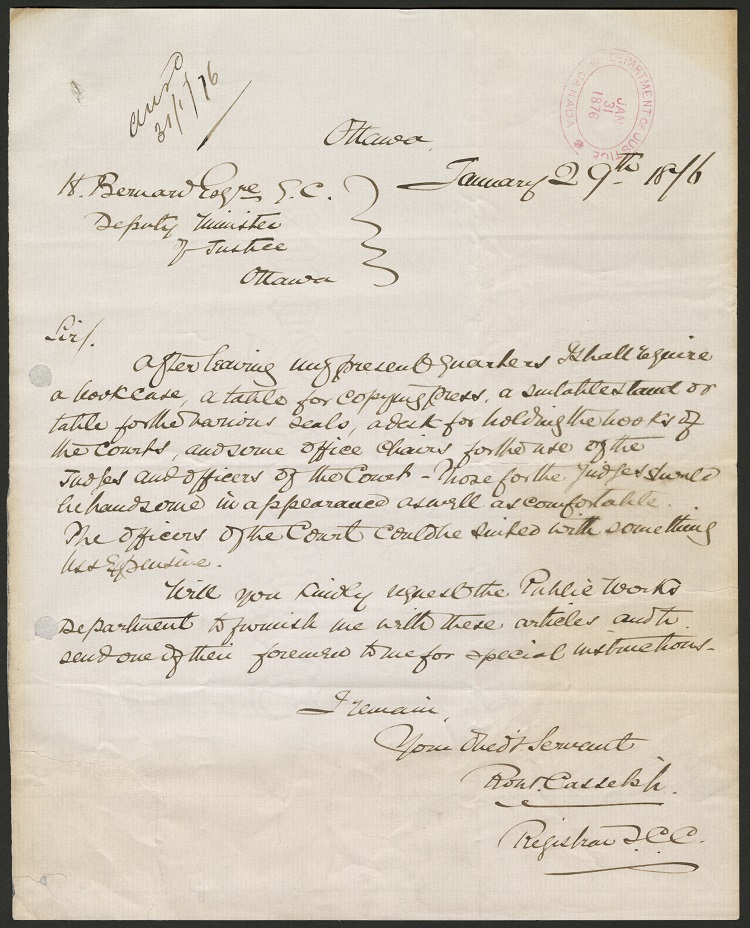 ansd
31/1/76
DEPARTMENT OF JUSTICE
CANADA
JAN
31
1876
Ottawa,
January 29th 1876
H. Bernard Esqre Q.C.
Deputy Minister
of Justice
Ottawa
Sir/.
After leaving my present quarters I shall require
a book case, a table for copying press, a suitable stand or
table for the various seals, a desk for holding the books of
the Courts, and some office chairs for the use of the
Judges and officers of the Court - Those for the Judges should
be handsome in appearance as well as comfortable.
The officers of the Court could be suited with something
less expensive.
Will you kindly request the Public Works
Department to furnish me with these articles and to
send one of their foremen to me for special instructions -
I remain,
Your Obed't Servant
Robt. Cassels Jr.
Registrar S.C.C.